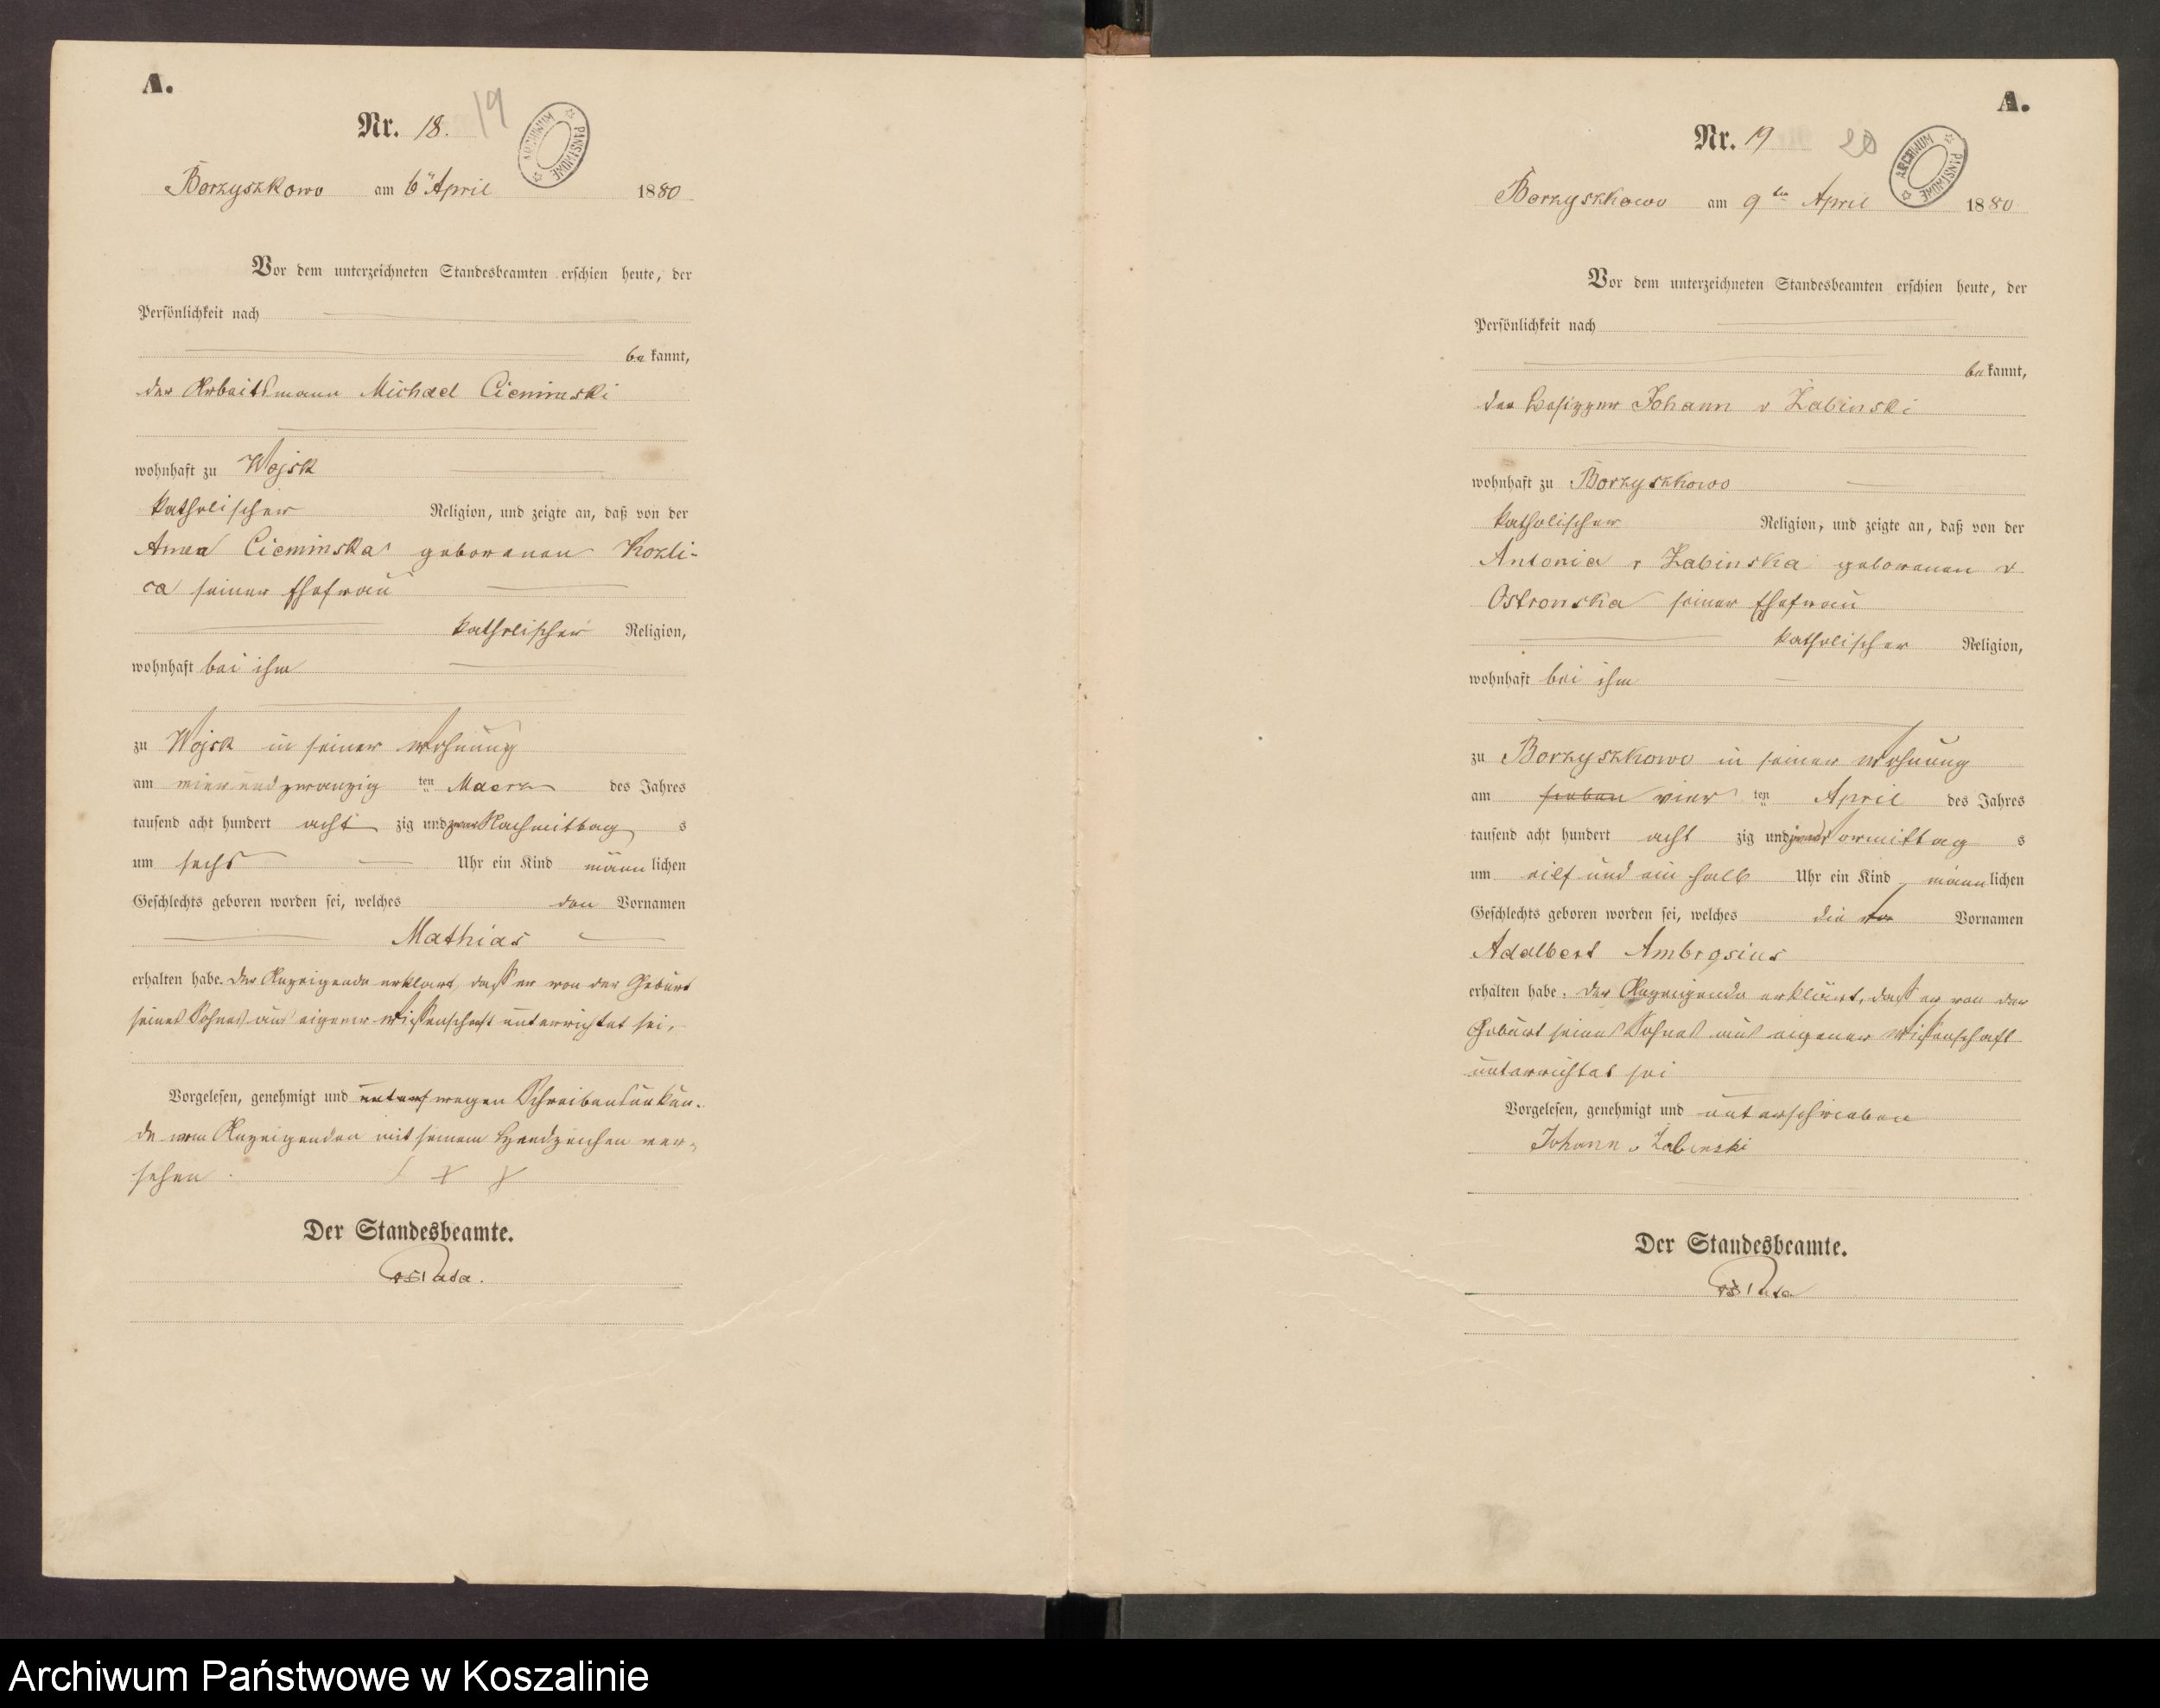 A.
Nr. 18. 19
ARCHIWUM PAŃSTWOWE
Borzyszkowo am 6ⁿ April 1880
Vor dem unterzeichneten Standesbeamten erschien heute, der
Persönlichkeit nach
be kannt,
der Arbeitsmann Michael Cieminski
wohnhaft zu Wojsk
katholischer Religion, und zeigte an, daß von der
Anna Cieminska geborenen Kozli-
ca seiner Ehefrau
katholischer Religion,
wohnhaft bei ihm
zu Wojsk in seiner Wohnung
am vierundzwanzig ten Maerz des Jahres
tausend acht hundert acht zig und zwar Nachmittag s
um sechs Uhr ein Kind männ lichen
Geschlechts geboren worden sei, welches den Vornamen
Mathias
erhalten habe. Der Anzeigende erklärt, daß er von der Geburt
seines Sohnes aus eigener Wissenschaft unterrichtet sei.
Vorgelesen, genehmigt und unters wegen Schreibensunkun-
de vom Anzeigenden mit seinem Handzeichen ver-
sehen. + + +
Der Standesbeamte.
A.
Nr. 19 20
ARCHIWUM PAŃSTWOWE
Borzyszkowo am 9ten April 1880
Vor dem unterzeichneten Standesbeamten erschien heute, der
Persönlichkeit nach
be kannt,
der Besitzer Johann v Żabinski
wohnhaft zu Borzyszkowo
katholischer Religion, und zeigte an, daß von der
Antonia v Zabinska geborenen v
Ostronska seiner Ehefrau
katholischer Religion,
wohnhaft bei ihm
zu Borzyszkowo in seiner Wohnung
am sieben vier ten April des Jahres
tausend acht hundert acht zig und zwar Vormittag s
um eilf und ein halb Uhr ein Kind männ lichen
Geschlechts geboren worden sei, welches die Vornamen
Adalbert Ambrosius
erhalten habe. Der Anzeigende erklärt, daß er von der
Geburt seines Sohnes aus eigener Wissenschaft
unterrichtet sei
Vorgelesen, genehmigt und unterschrieben
Johann v Żabinski
Der Standesbeamte.
Archiwum Państwowe w Koszalinie